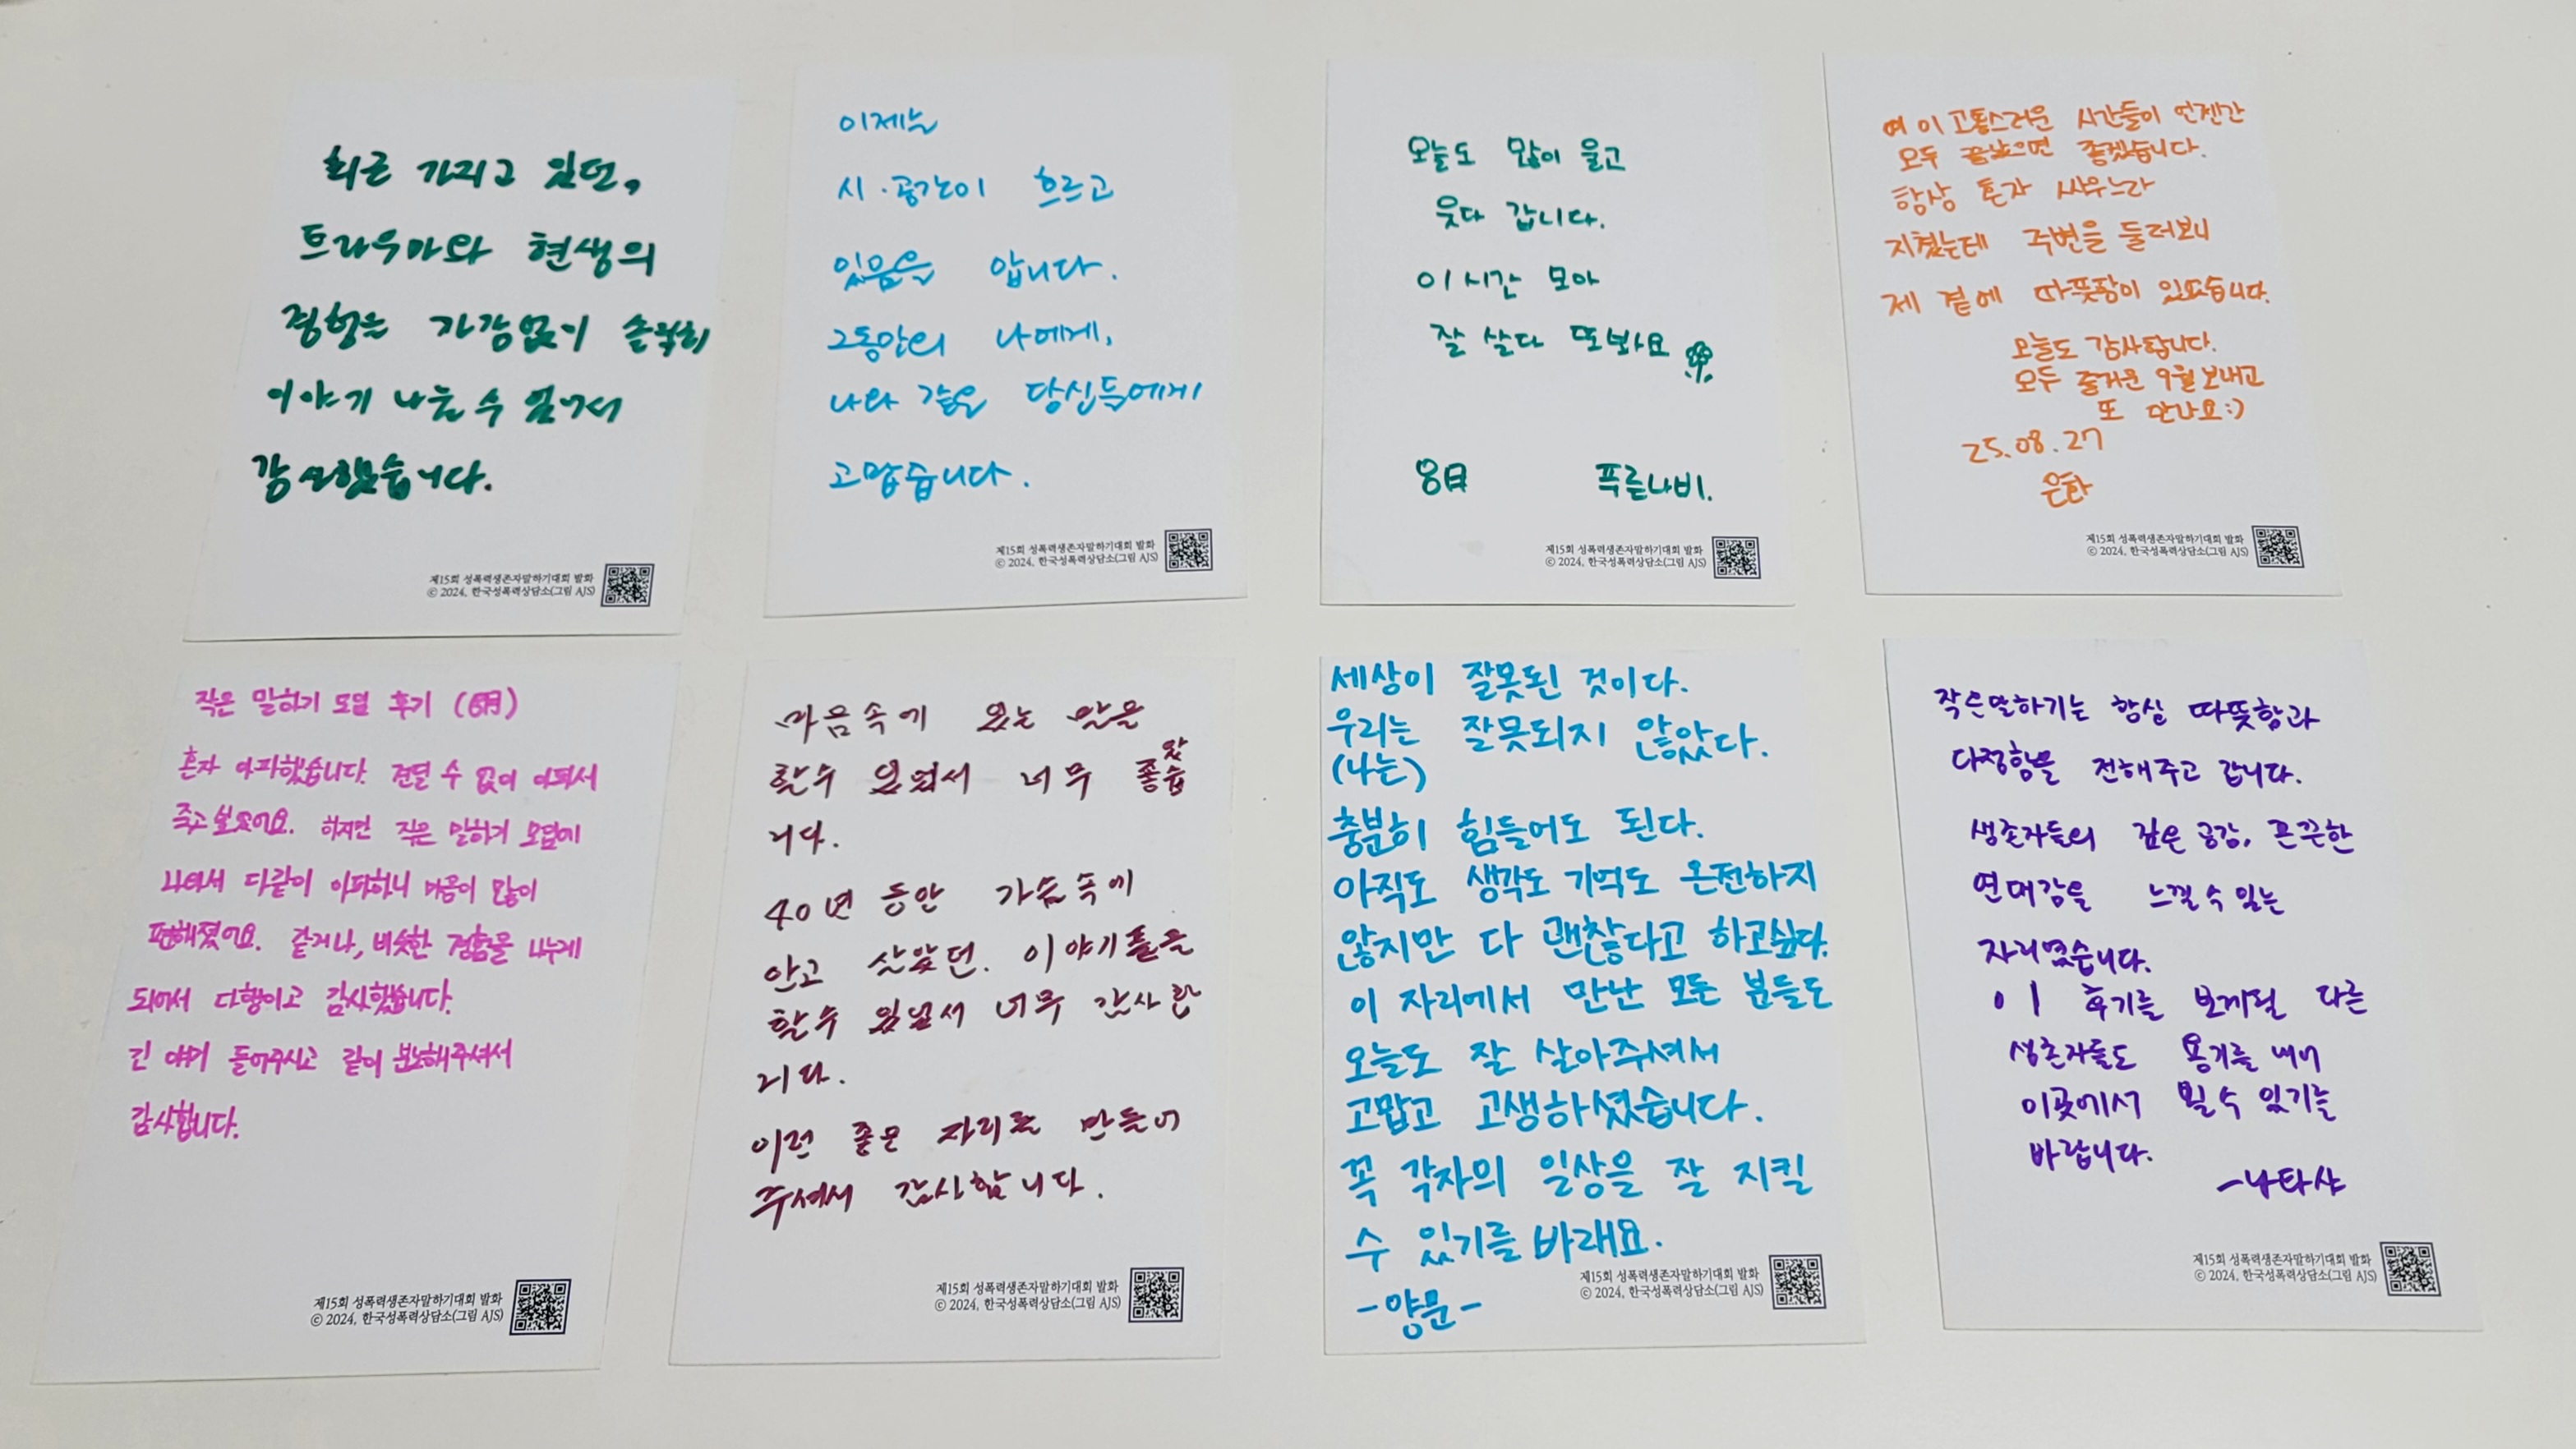 최근 가지고 있던,
트라우마와 현생의
경험을 가감없이 솔직히
이야기 나눌 수 있어서
감사했습니다.
제15회 성폭력생존자말하기대회 발화
© 2024, 한국성폭력상담소(그림 AJS)
이제는
시·공간이 흐르고
있음을 압니다.
그동안의 나에게,
나와 같은 당신들에게
고맙습니다.
제15회 성폭력생존자말하기대회 발화
© 2024, 한국성폭력상담소(그림 AJS)
오늘도 많이 울고
웃다 갑니다.
이 시간 모아
잘 살다 또봐요
8月 푸른나비.
제15회 성폭력생존자말하기대회 발화
© 2024, 한국성폭력상담소(그림 AJS)
이 고통스러운 시간들이 언젠간
모두 끝났으면 좋겠습니다.
항상 혼자 싸우느라
지쳤는데 주변을 둘러보니
제 곁에 따뜻함이 있었습니다.
오늘도 감사합니다.
모두 즐거운 9월 보내고
또 만나요:)
25.08.27
은화
제15회 성폭력생존자말하기대회 발화
© 2024, 한국성폭력상담소(그림 AJS)
작은 말하기 모임 후기 (6月)
혼자 아파했습니다. 견딜 수 없이 아파서
죽고 싶었어요. 하지만 작은 말하기 모임에
나와서 다같이 아파하니 마음이 많이
편해졌어요. 같거나, 비슷한 경험을 나누게
되어서 다행이고 감사했습니다.
긴 얘기 들어주시고 같이 분노해주셔서
감사합니다.
제15회 성폭력생존자말하기대회 발화
© 2024, 한국성폭력상담소(그림 AJS)
마음속에 있는 말을
할수 있어서 너무 좋았습
니다.
40년 동안 가슴속에
안고 살았던. 이야기들을
할수 있어서 너무 감사합
니다.
이런 좋은 자리를 만들어
주셔서 감사합니다.
제15회 성폭력생존자말하기대회 발화
© 2024, 한국성폭력상담소(그림 AJS)
세상이 잘못된 것이다.
우리는 잘못되지 않았다.
(나는)
충분히 힘들어도 된다.
아직도 생각도 기억도 온전하지
않지만 다 괜찮다고 하고싶다.
이 자리에서 만난 모든 분들도
오늘도 잘 살아주셔서
고맙고 고생하셨습니다.
꼭 각자의 일상을 잘 지킬
수 있기를 바래요.
-양문-
제15회 성폭력생존자말하기대회 발화
© 2024, 한국성폭력상담소(그림 AJS)
작은말하기는 항상 따뜻함과
다정함을 전해주고 갑니다.
생존자들의 깊은 공감, 끈끈한
연대감을 느낄 수 있는
자리였습니다.
이 후기를 보게될 다른
생존자들도 용기를 내어
이곳에서 뵐 수 있기를
바랍니다.
-나타샤
제15회 성폭력생존자말하기대회 발화
© 2024, 한국성폭력상담소(그림 AJS)